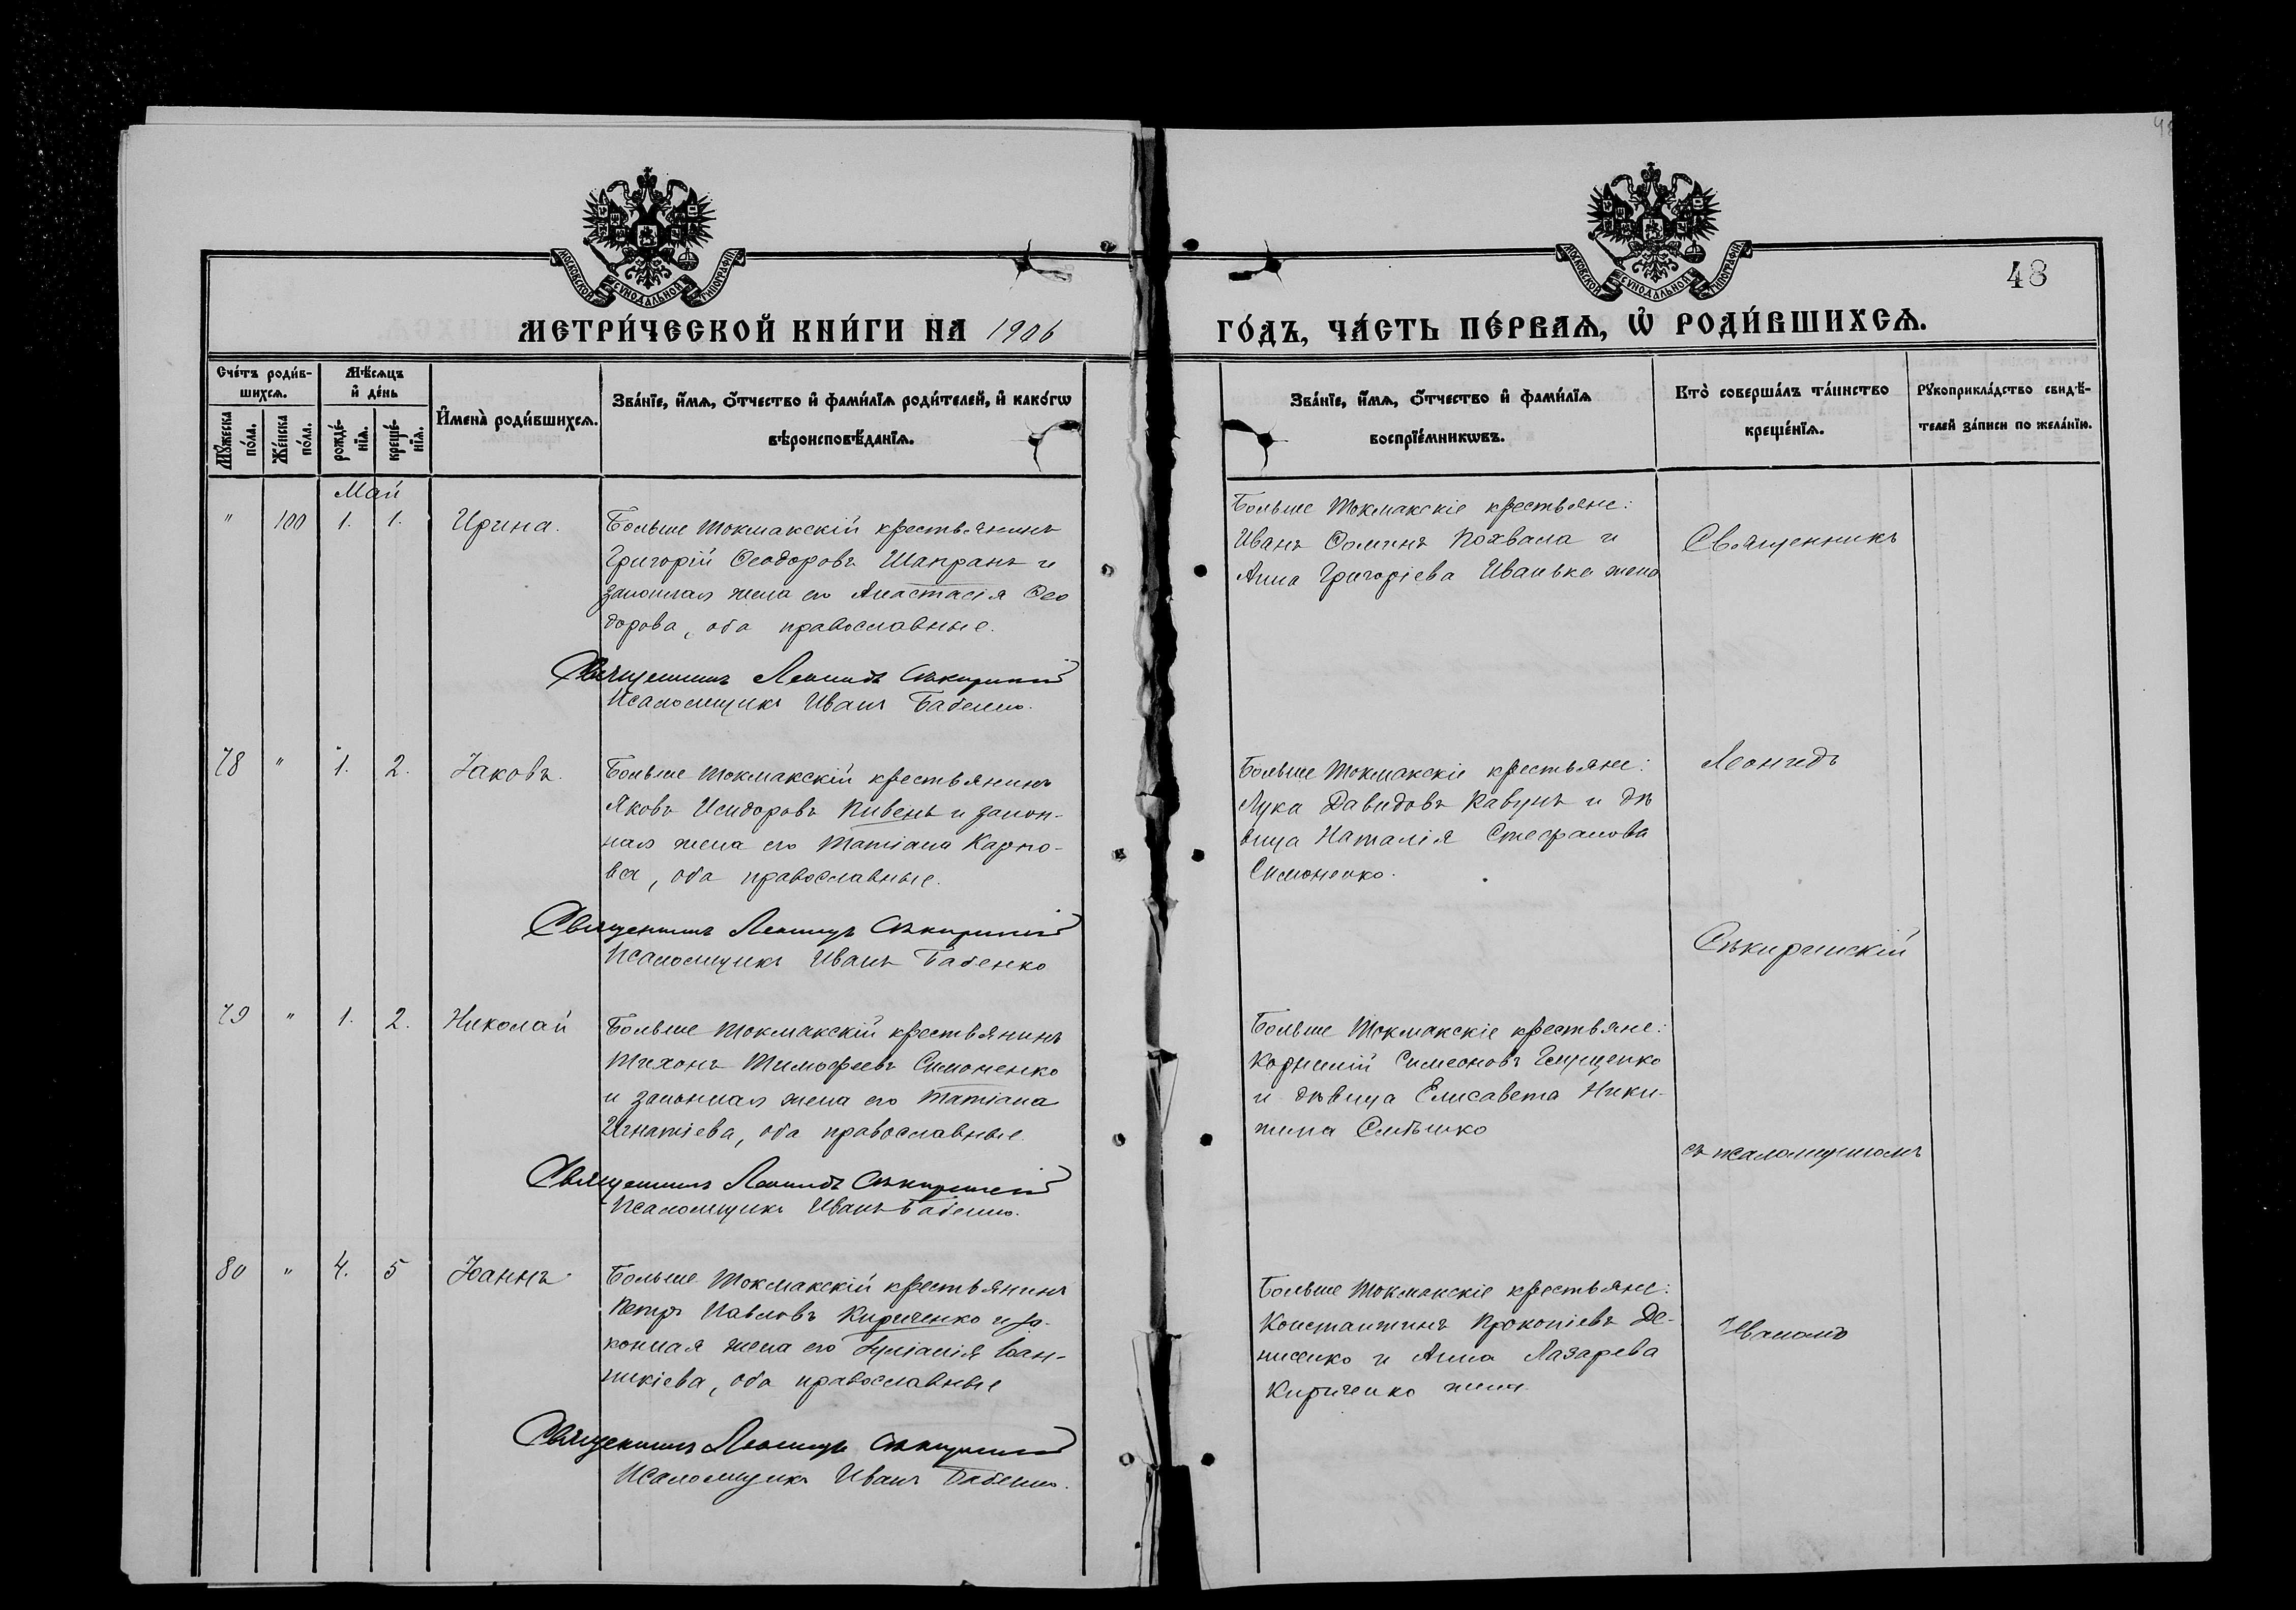 48
МОСКОВСКОЙ СѴНОДАЛЬНОЙ ТИПОГРАФІИ
МОСКОВСКОЙ СѴНОДАЛЬНОЙ ТИПОГРАФІИ
48
МЕТРИ́ЧЕСКОЙ КНИ́ГИ НА 1906
ГО́ДЪ, ЧА́СТЬ ПЕ́РВАѦ, Ѡ҆ РОДИ́ВШИХСѦ.
Сче́тъ роди́в-
шихсѧ.
Мѣ́сѧцъ
и҆ де́нь
Мꙋ́жеска
по́ла.
Же́нска
по́ла.
рожде́-
нїѧ.
креще́-
нїѧ.
И҆мена̀ роди́вшихсѧ.
Зва́нїе, и҆́мѧ, ѻ҆́тчество и҆ фами́лїѧ роди́телей, и҆ како́гѡ
вѣроисповѣ́данїѧ.
Зва́нїе, и҆́мѧ, ѻ҆́тчество и҆ фами́лїѧ
воспрїе́мникѡвъ.
Кто̀ соверша́лъ та́инство
креще́нїѧ.
Рꙋкоприкла́дство свидѣ́-
телей за́писи по жела́нїю.
Май
" 100 1. 1. Ирина.
Больше Токмакскій крестьянинъ
Григорій Ѳеодоровъ Шапранъ и
законная жена его Анастасія Ѳео
дорова, оба православные.
Священникъ Леонидъ Сѣкиринскій
Псаломщикъ Иванъ Бабенко.
Больше Токмакскіе крестьяне:
Иванъ Ѳоминъ Похвала и
Анна Григоріева Иванька жена
Священникъ
78 " 1. 2. Іаковъ.
Больше Токмакскій крестьянинъ
Яковъ Исидоровъ Пивень и закон-
ная жена его Татіана Карпо-
ва, оба православные.
Священникъ Леонидъ Сѣкиринскій
Псаломщикъ Иванъ Бабенко
Больше Токмакскіе крестьяне:
Лука Давидовъ Кавунъ и дѣ
вица Наталія Стефанова
Симоненко.
Леонидъ
Сѣкиринскій
79 " 1. 2. Николай
Больше Токмакскій крестьянинъ
Тихонъ Тимофеевъ Симоненко
и законная жена его Татіана
Игнатіева, оба православные.
Священникъ Леонидъ Сѣкиринскій
Псаломщикъ Иванъ Бабенко.
Больше Токмакскіе крестьяне:
Корнилій Симеоновъ
и дѣвица Елисавета Ники-
тина
съ псаломщикомъ
80 " 4. 5 Іоаннъ
Больше Токмакскій крестьянинъ
Петръ Павловъ Кириченко и за-
конная жена его Іуліанія Іоан-
никіева, оба православные
Священникъ Леонидъ Сѣкиринскій
Псаломщикъ Иванъ Бабенко.
Больше Токмакскіе крестьяне:
Константинъ Прокопіевъ Де-
нисенко и Анна Лазарева
Кириченко жена.